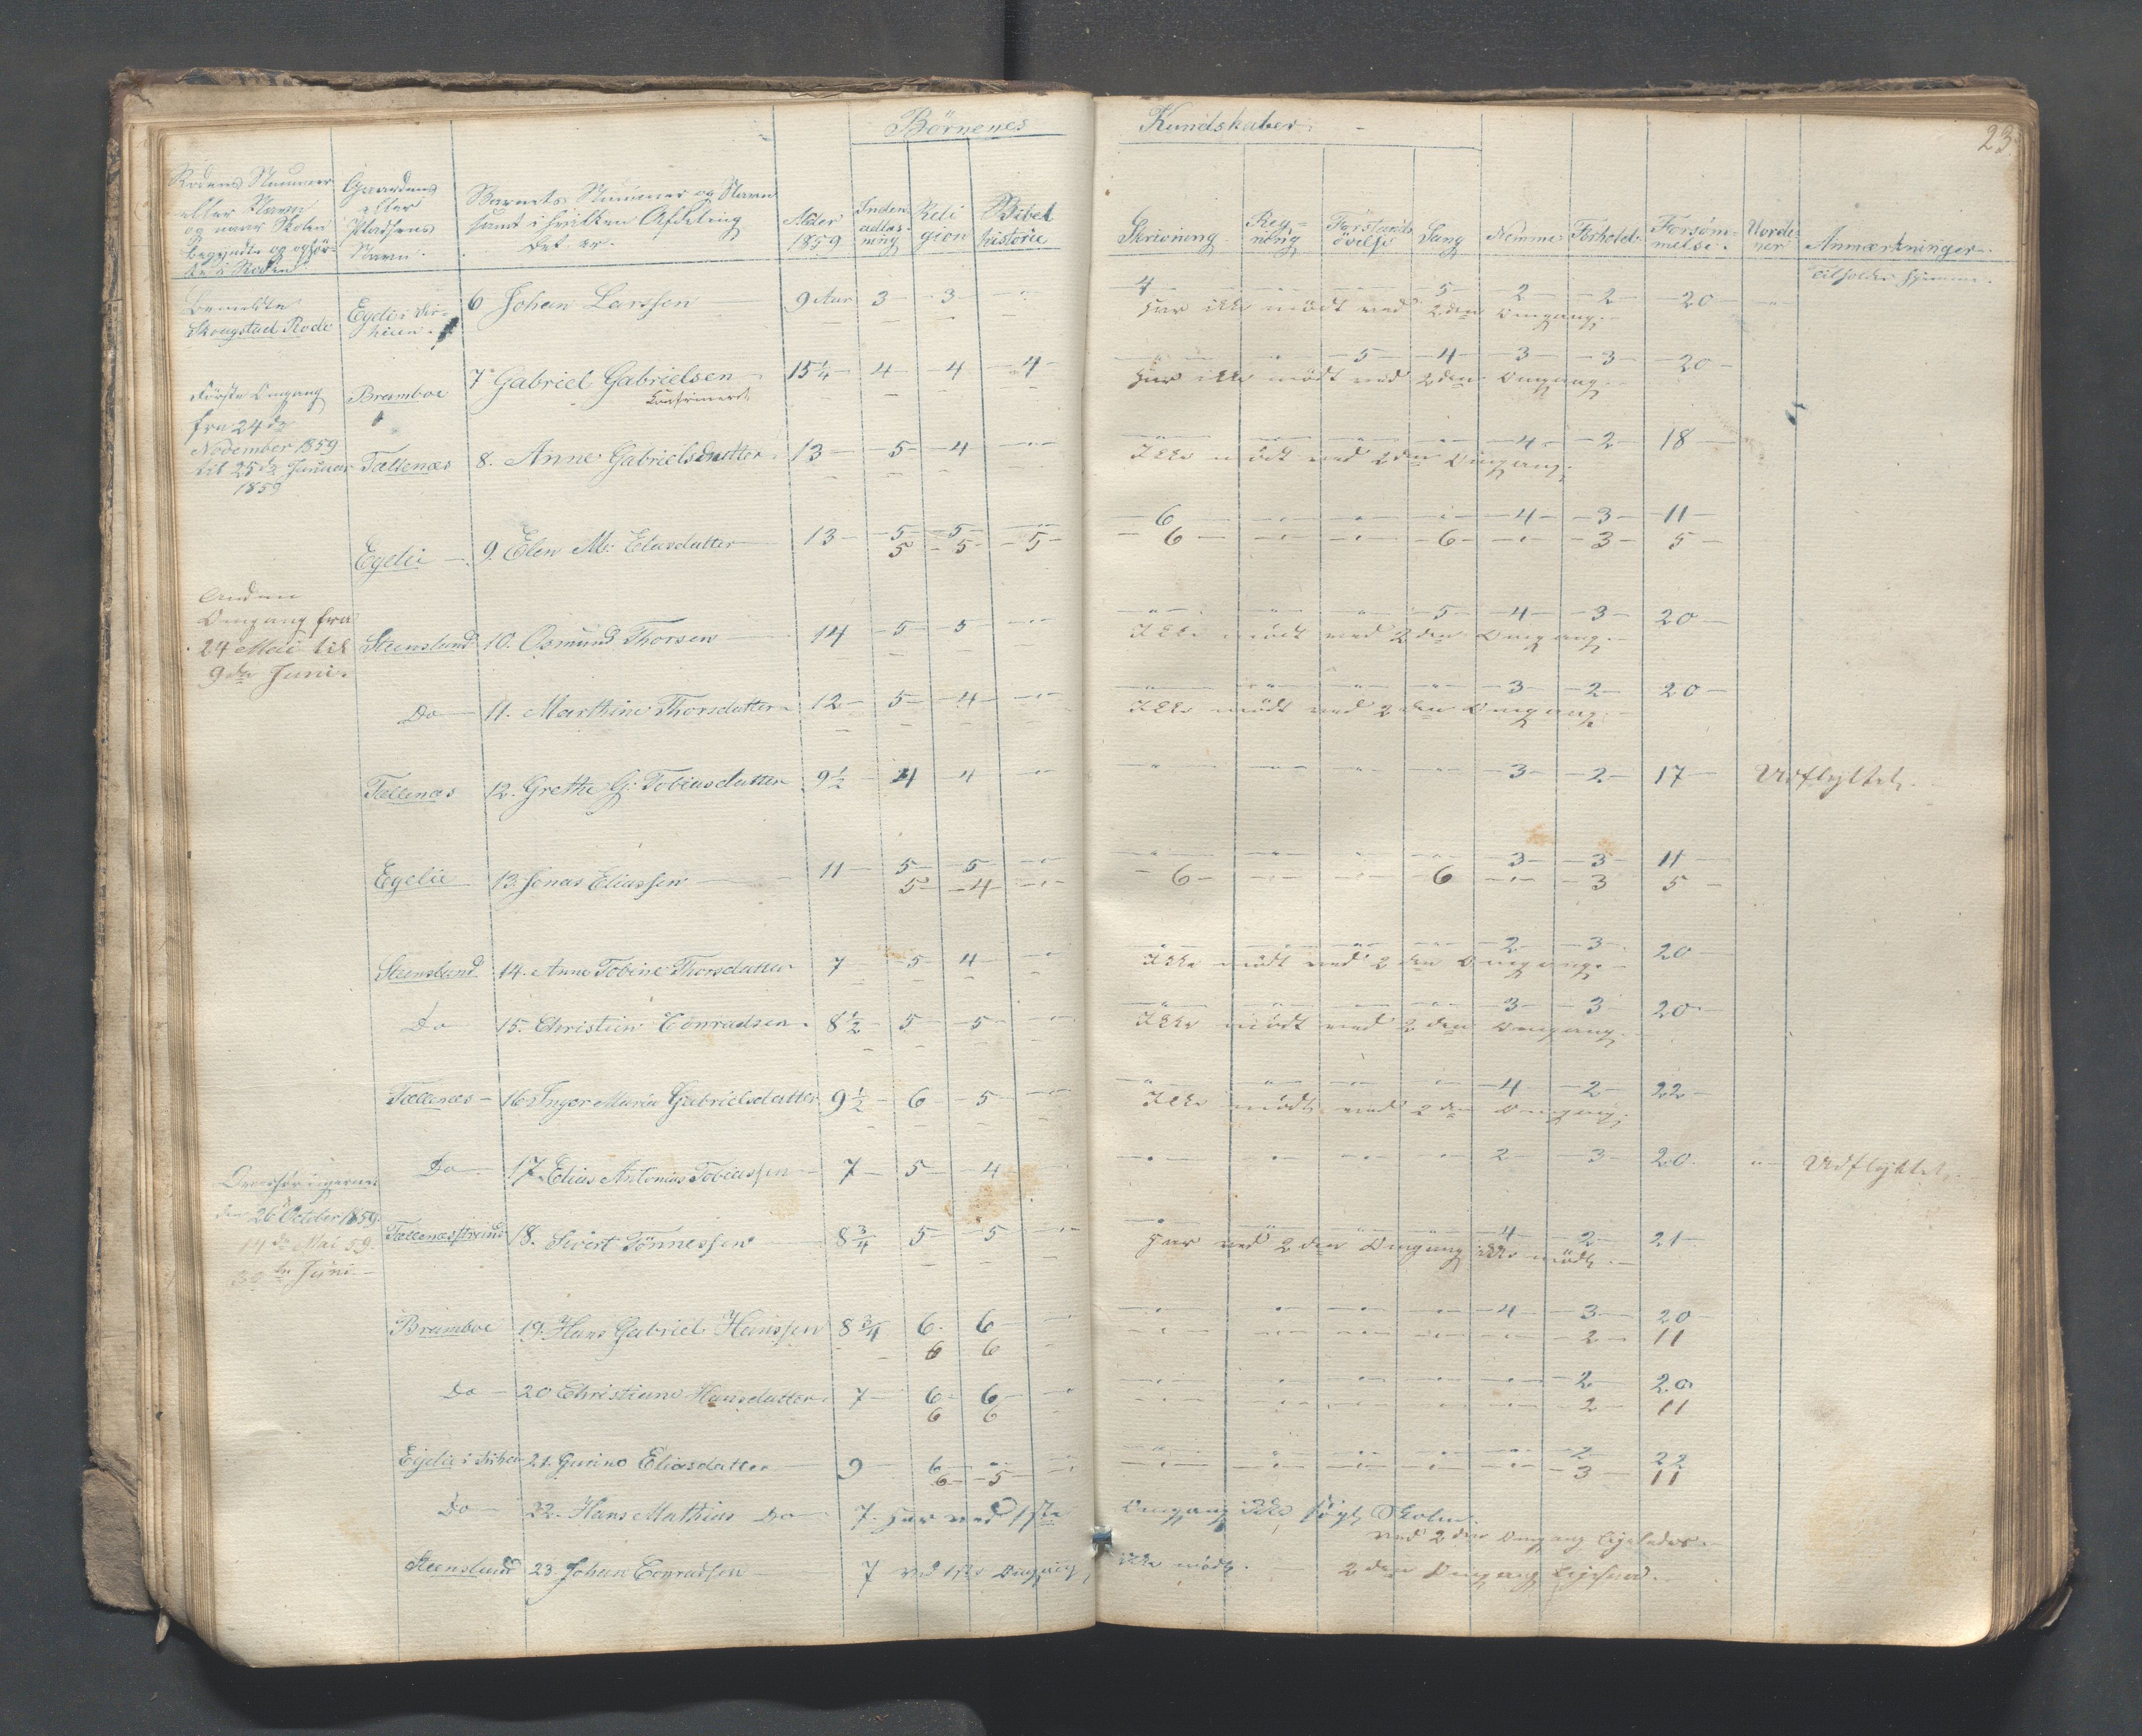 Børnenes Kundskaber. 23.
Rodens Nummer eller Navn og naar Skolen begyndte og ophørte i Roden
Gaardens eller Pladsens Navn.
Barnets Nummer og Navn samt i hvilken Afdeling det er.
Alder 1859
Inden­adlæs­ning
Reli gion
Bibel historie
Skrivning
Reg= ning
Forstands øvelse
Sang
Nemme
Forhold
Forsøm= melse.
Anmærkninger.
Bemeldte Skougstad Rode
Egelie 6 Johan Larssen 9 Aar 3 - 3 - " 4 - 5 - 2 - 2 - 20 -
Har ikke mødt ved 2den Omgang.
Første Omgang
fra 24de
November 1859
til 25de Januar
1859
Bramboe 7 Gabriel Gabrielsen 15¼ 4 - 4 - 4 - " " 5 - 4 - 3 - 3 - 20 -
Confirmeret
Har ikke mødt ved 2den Omgang.
Tællenæs 8. Anne Gabrielsdatter 13 - 5 - 4 - " " " " " 4 - 2 - 18
Ikke mødt ved 2den Omgang.
Egelie 9. Elen M: Eliasdatter 13 - 5 - 5 - " 6 " " " 4 - 3 - 11
5 - 5 - 5 - 6 " " 6 - " - 3 - 5
Anden
Omgang fra
24 Mai til
9de Juni.
Steenslund 10. Osmund Thorsen 14 - 5 - 5 - " " " " 5 - 4 - 3 - 20
Ikke mødt ved 2den Omgang.
Do 11. Marthine Thorsdatter 12 - 5 - 4 - " " " " " 3 - 2 - 20
Ikke mødt ved 2den Omgang.
Tællenæs 12. Grethe G: Tobiasdatter 9½ 4 4 " " " " " 3 - 2 - 17 Udflyttet.
Egelie 13. Jonas Eliassen 11 - 5 - 5 - " " " " " 3 - 3 - 11
5 - 4 - " 6 " " 6 - " - 3 5
Steenslund 14. Anne Tobine Thorsdatter 7 - 5 - 4 - " " " " " 2 - 3 - 20
Ikke mødt ved 2den Omgang.
Do 15. Christian Conradsen 8½ - 5 - 5 - " " " " " 3 - 3 - 20
Ikke mødt ved 2den Omgang.
Tællenæs 16. Inger Maria Gabrielsdatter 9½ - 6 - 5 - " " " " " 4 - 2 - 22
Ikke mødt ved 2den Omgang.
Do 17. Elias Antonius Tobiassen 7 - 5 - 4 " " " " 2 - 3 - 20 " Udflyttet.
den 26 October 1859.
14de Mai 59.
30te Juni.
Tællenæsstrand 18. Sivert Tønnessen 8¾ 5 - 5 - " " " " " 4 - 2 - 21
Har ved 2den Omgang ikke mødt.
Bramboe 19. Hans Gabriel Hanssen 8¾ 6 - 6 - " " " " " 4 - 3 - 20
6 6 " " " " " 2 - 11
Do 20 Christiane Hansdatter 7 - 6 - 6 - " " " " " " 2 20
6 6 " " " " " 2 - 11
Egelie 21. Gurine Eliasdatter 9 - 6 " " " " " " " 2 22
6 - 5 - " " " " " " 3 11
Do 22. Hans Mathias Do 7. Har ved 1ste Omgang ikke søgt Skolen.
ved 2den Omgang ligeledes.
Steenslund 23. Johan Conradsen 7 ved 1ste Omgang ikke mødt. 2den Omgang ligesaa.